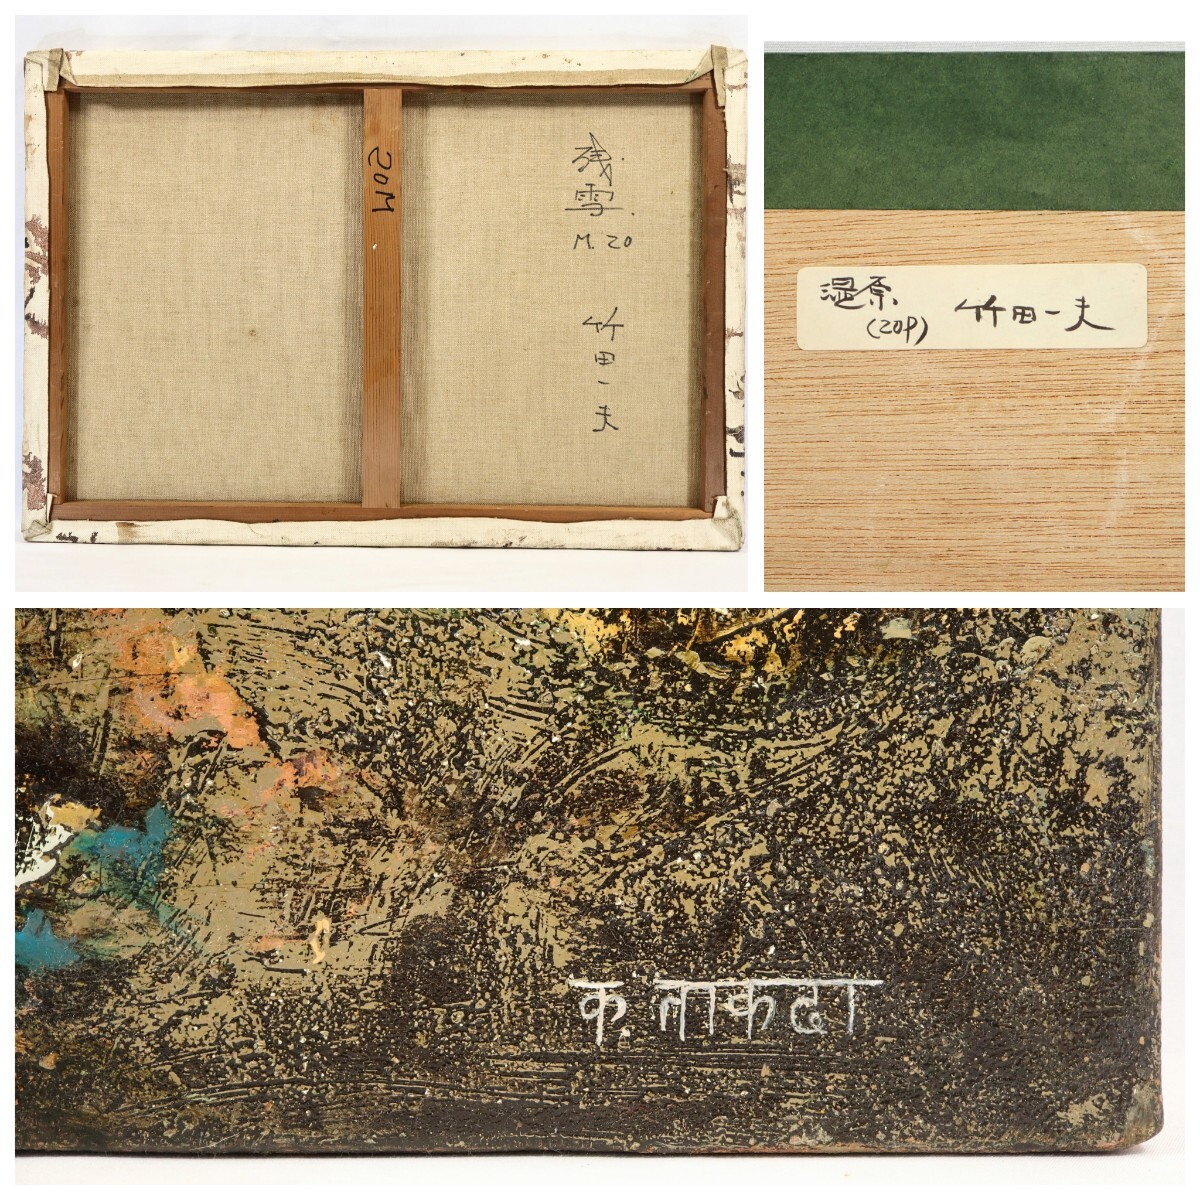 20M
残雪.
M.20
竹田一夫
湿原.
(20P)
竹田一夫
क. ताकदा